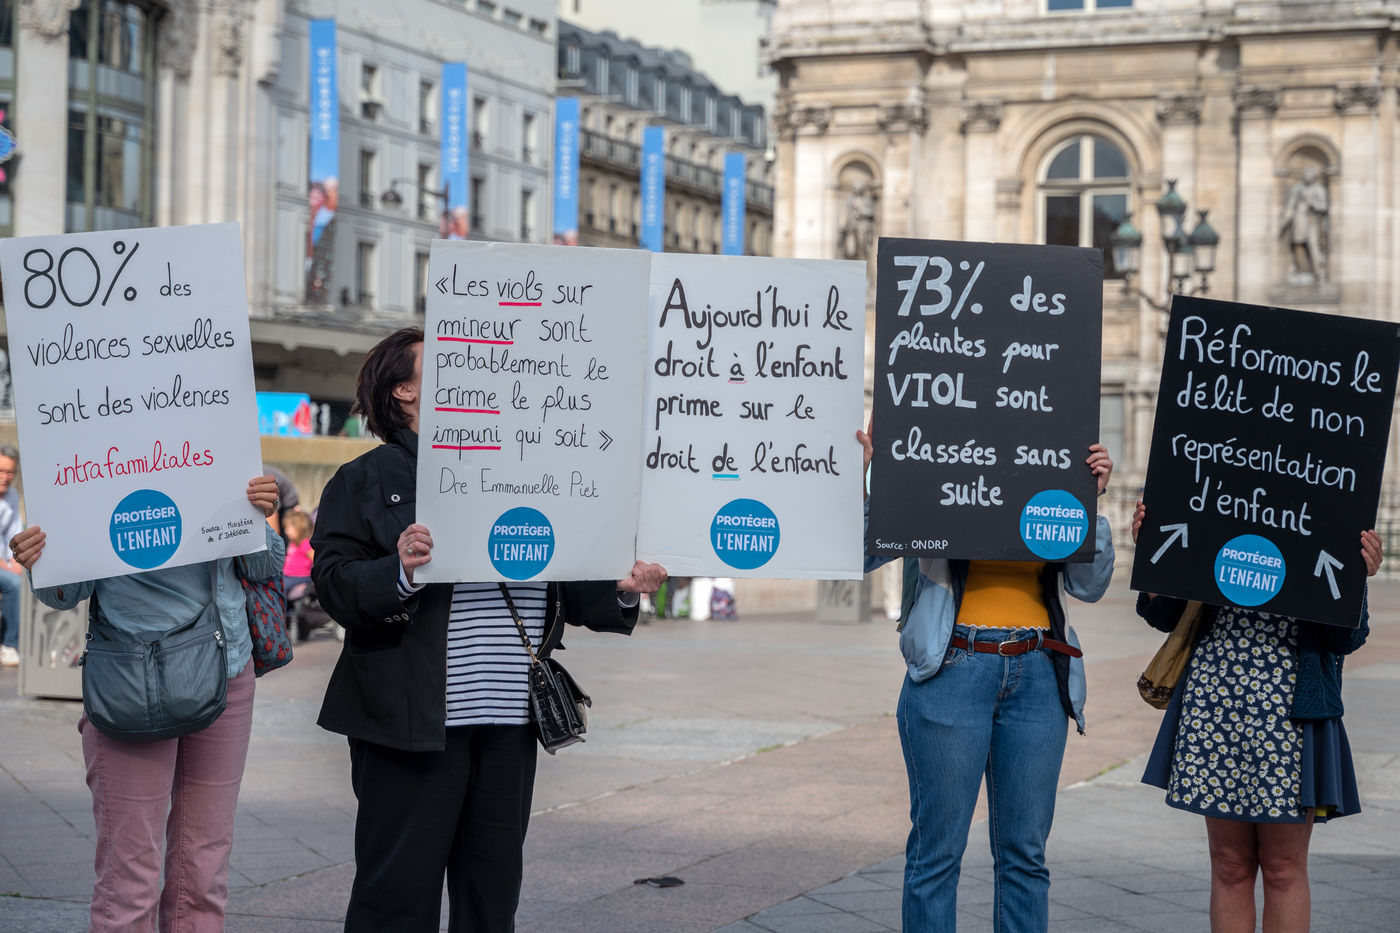 80% des
violences sexuelles
sont des violences
intrafamiliales
PROTÉGER
L'ENFANT
Source : Ministère
de l'Intérieur
«Les viols sur
mineur sont
probablement le
crime le plus
impuni qui soit »
Dre Emmanuelle Piet
PROTÉGER
L'ENFANT
Aujourd'hui le
droit à l'enfant
prime sur le
droit de l'enfant
PROTÉGER
L'ENFANT
73% des
plaintes pour
VIOL sont
classées sans
suite
Source : ONDRP
PROTÉGER
L'ENFANT
Réformons le
délit de non
représentation
d'enfant
PROTÉGER
L'ENFANT